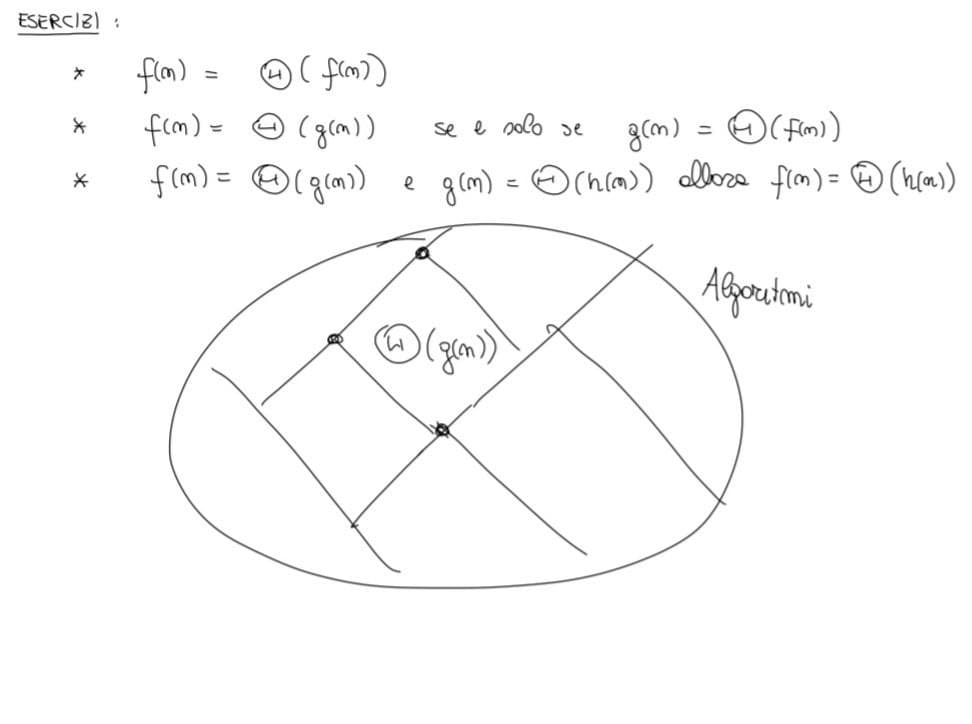 ESERCIZI :
* f(n) = Θ( f(n))
* f(n) = Θ (g(n)) se e solo se g(n) = Θ(f(n))
* f(n) = Θ(g(n)) e g(n) = Θ(h(n)) allora f(n) = Θ(h(n))
Algoritmi
Θ(g(n))